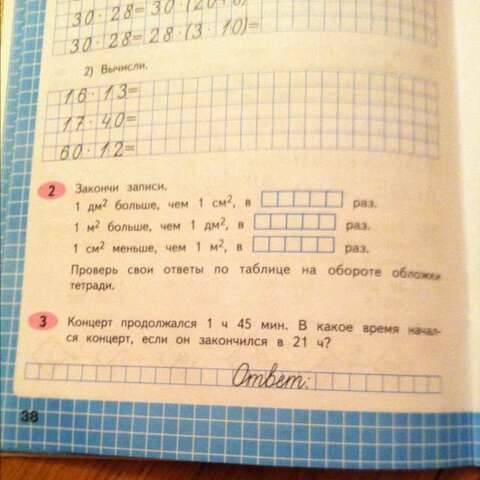 30 · 28 = 30 · (20
30 · 28 = 28 · (3 · 10) =
2) Вычисли.
16 · 13 =
17 · 40 =
60 · 12 =
2 Закончи записи.
1 дм² больше, чем 1 см², в раз.
1 м² больше, чем 1 дм², в раз.
1 см² меньше, чем 1 м², в раз.
Проверь свои ответы по таблице на обороте обложки
тетради.
3 Концерт продолжался 1 ч 45 мин. В какое время начал-
ся концерт, если он закончился в 21 ч?
Ответ:
38